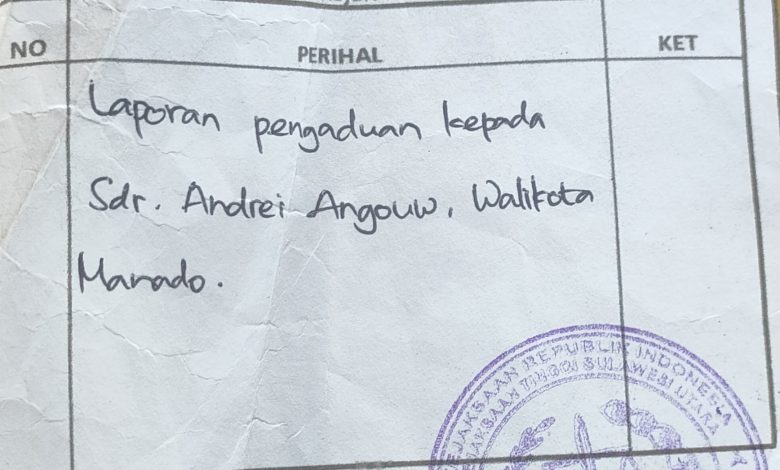 NO PERIHAL KET
Laporan pengaduan kepada
Sdr. Andrei Angouw, Walikota
Manado.
KEJAKSAAN REPUBLIK INDONESIA
KEJAKSAAN TINGGI SULAWESI UTARA